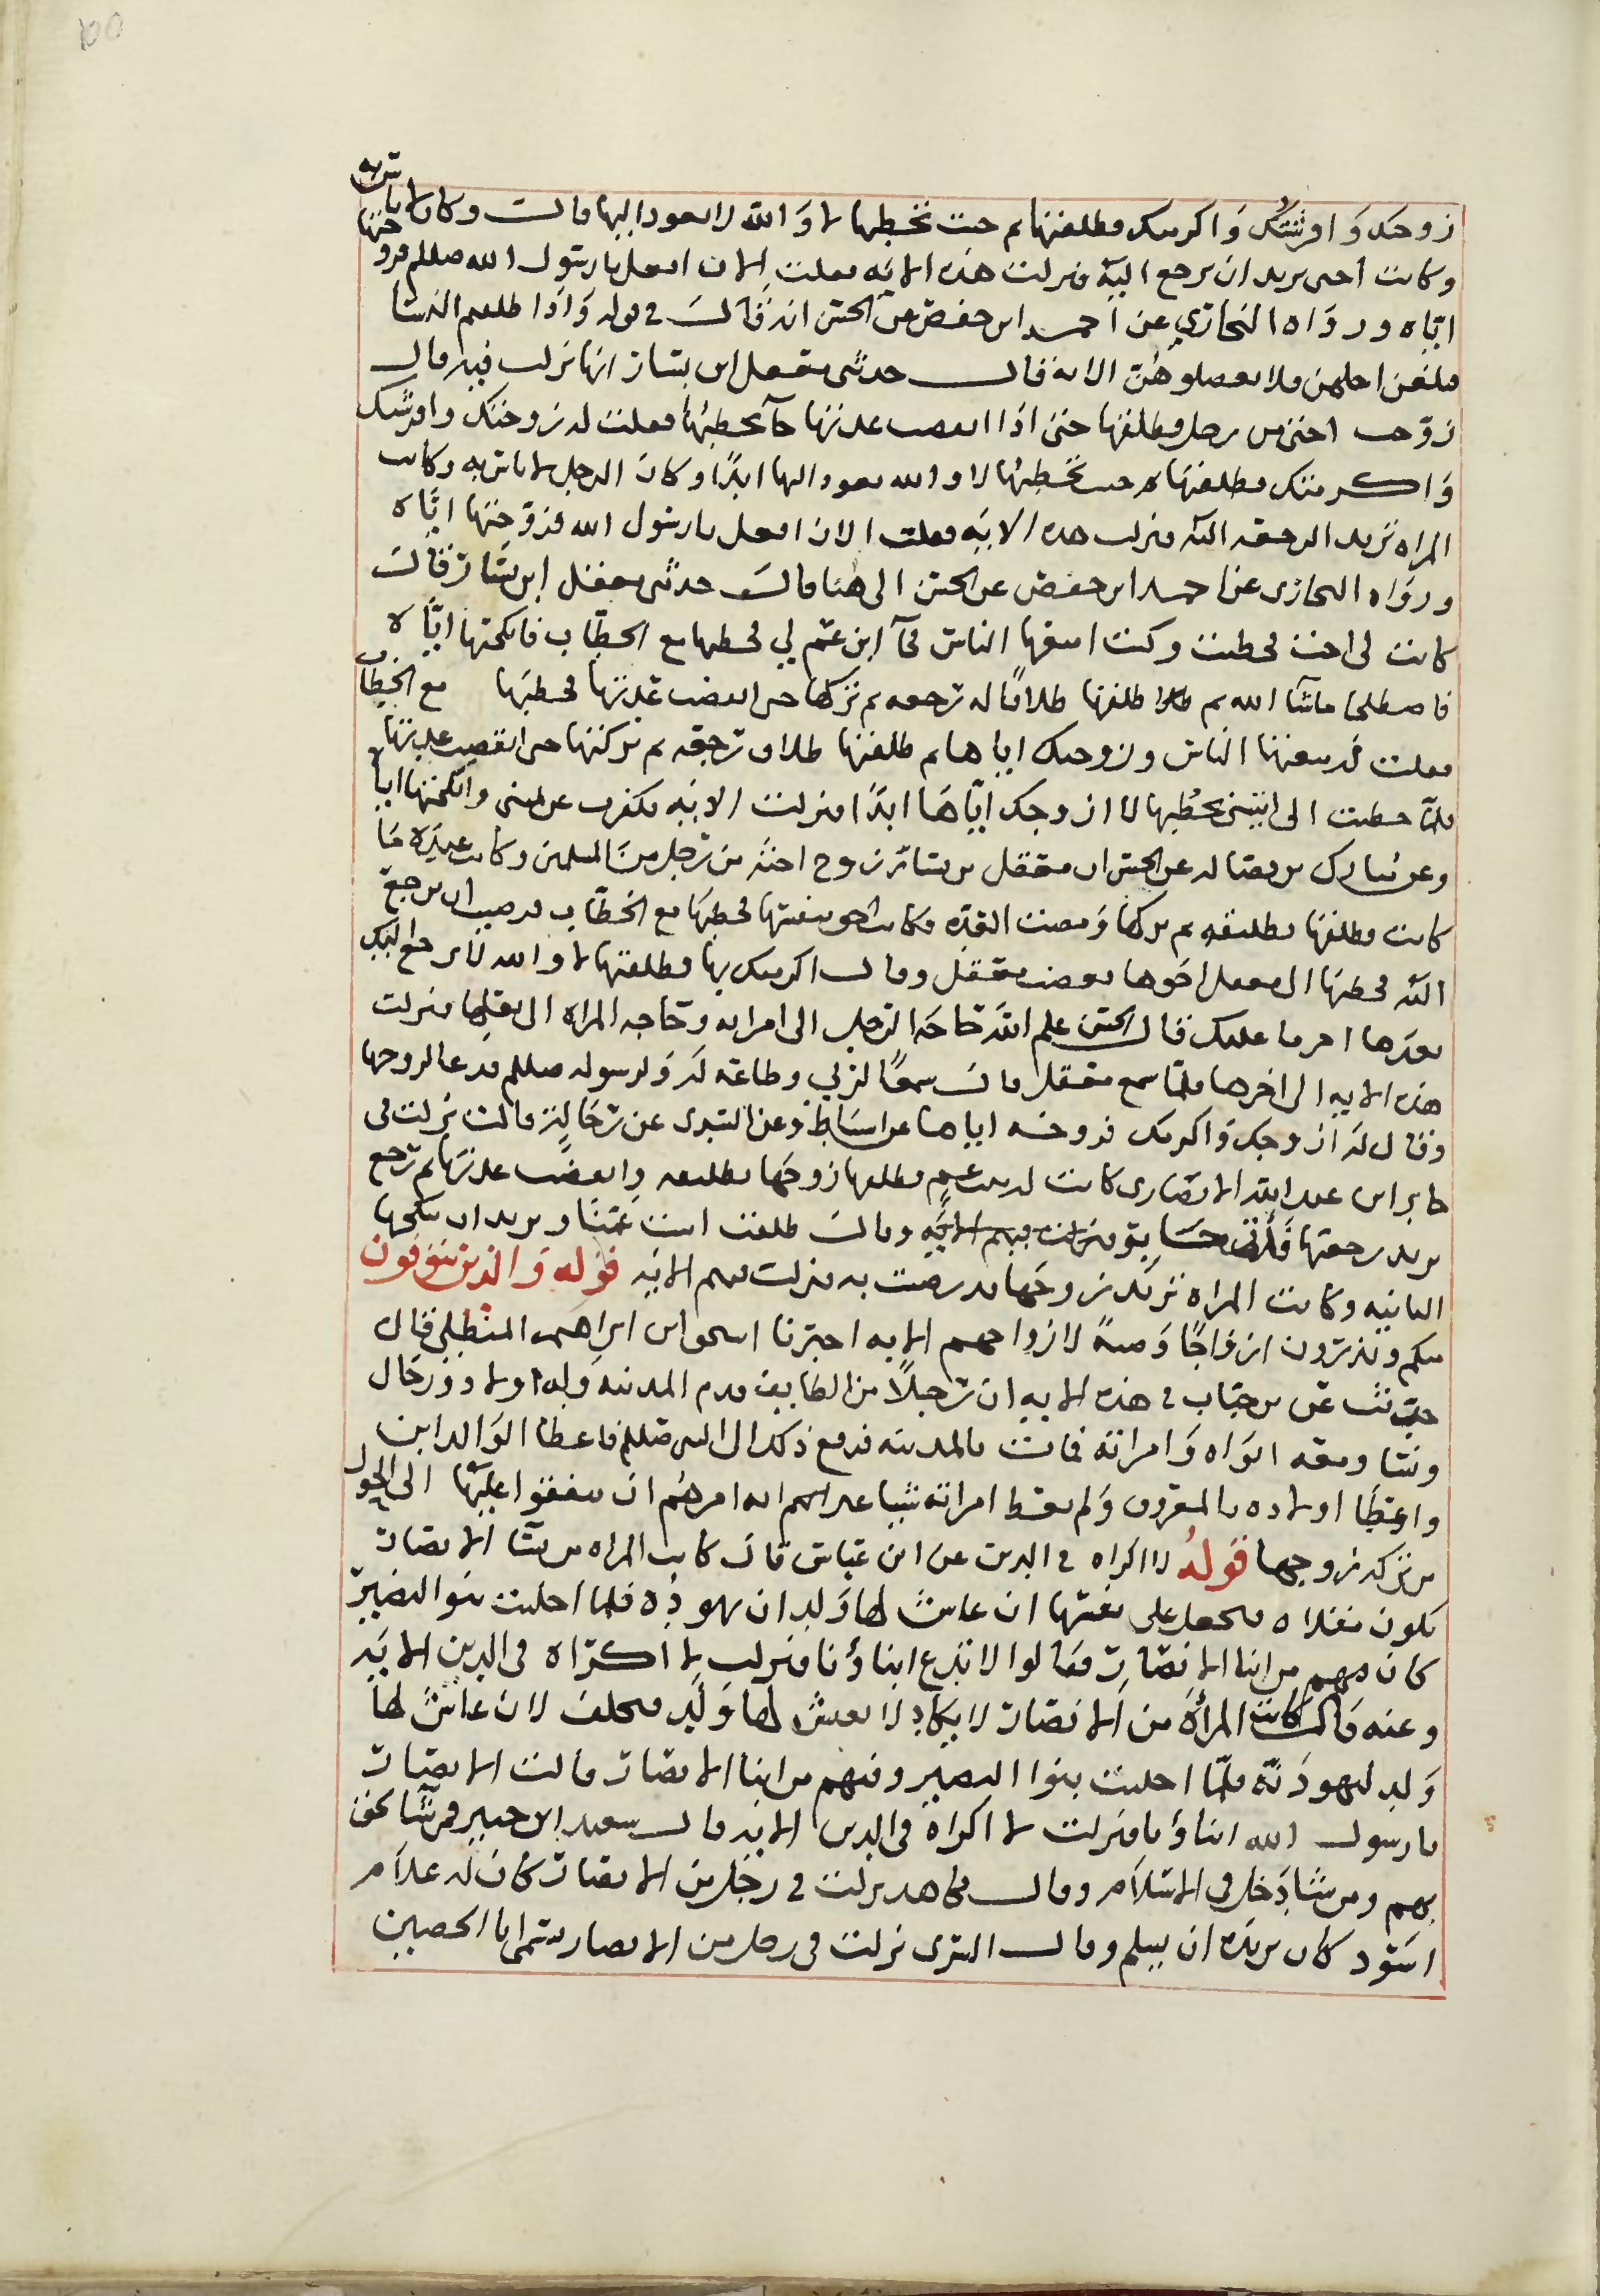 زوجتك وافرشتك واكرمتك فطلقتها ثم جيت تخطبها لا والله لا تعود اليها قالت وكان لا باس به
وكانت اختي تريد ان ترجع اليه فنزلت هذه الايه فقلت الان افعل يا رسول الله صللم فزوجتها
اياه ورواه البخاري عن احمد ابن حفص عن الحسن انه قال في قوله واذا طلقتم النسا
فبلغن اجلهن فلا تعضلوهن الايه قال حدثني معقل ابن يسار انها نزلت فيه قال
زوجت اختي من رجل فطلقها حتى اذا انقضت عدتها جآ يخطبها فقلت له زوجتك وافرشتك
واكرمتك فطلقتها ثم جيت تخطبها لا والله تعود اليها ابدًا وكان الرجل لا باس به وكانت
المراه تريد الرجعه اليه فنزلت هذه الايه فقلت الان افعل يا رسول الله فزوجتها اياه
ورواه البخاري عن احمد ابن حفص عن الحسن الى هنا قال حدثني معقل ابن يسار قال
كانت لي اخت تخطبت وكنت امنعها الناس فجآ ابن عم لي فخطبها مع الخطاب فانكحتها اياه
فاصطلحا ماشآ الله ثم طلقها طلاقًا له رجعه ثم تركها حتى انقضت عدتها فخطبها مع الخطاب
فقلت قد منعتها الناس وزوجتك اياها ثم طلقتها طلاق رجعه ثم تركتها حتى انقضت عدتها
فلما خطبت الى اتيتني تخطبها لا ازوجك اياها ابدًا فنزلت الايه فكفرت عن يميني وانكحتها اياه
وعن مبارك بن فضاله عن الحسن ان معقل بن يسار زوج اخته من رجل من المسلمين وكانت عنده ما
كانت فطلقها تطليقه ثم تركها ومضت العده فكانت احق بنفسها فخطبها مع الخطاب فرضيت ان ترجع
اليه فخطبها الى معقل اخوها فغضب معقل وقال اكرمتك بها فطلقتها لا والله لا ترجع اليك
بعدها اخر ما عليك قال الحسن علم الله حاجه الرجل الى امراته وحاجه المراه الى بعلها فنزلت
هذه الايه الى اخرها فلما سمع معقل قال سمعًا لربي وطاعه له ولرسوله صللم فدعا لزوجها
وقال له ازوجك واكرمك فزوجه اياها عن اسباط وعن السدي عن رجاله قالت نزلت في
جابر ابن عبد الله الانصاري كانت له بنت عم فطلقها زوجها تطليقه وانقضت عدتها ثم رجع
يريد رجعتها فابى جابر وقال طلقت ابنت عمنا وتريد ان تنكحها
الثانيه وكانت المراه تريد زوجها قد رضت به فنزلت فيهم الايه قوله والذين يتوفون
منكم ويذرون ازواجًا وصيةً لازواجهم الايه اخبرنا اسحق ابن ابراهيم المنظلي قال
حدثت عن بن حيان في هذه الايه ان رجلًا من الطايف قدم المدينه وله اولاد ورجال
ونسا ومعه ابواه وامراته فمات بالمدينه فرفع ذلك الى النبي صللم فاعطا الوالدين
واعطا اولاده بالمعروف ولم يعط امراته شيا غير انهم امرهم ان ينفقوا عليها الى الحول
من تركه زوجها قوله لا اكراه في الدين عن ابن عباس قال كانت المراه من نسآ الانصار
تكون مقلاه فتجعل على نفسها ان عاش لها ولد ان تهوده فلما اجليت بنوا النضير
كان فيهم من ابنا الانصار فقالوا لا ندع ابناؤنا فنزلت لا اكراه في الدين الايه
وعنه قال كانت المرأة من الانصار لا يكاد لا يعيش لها ولد فتحلف لان عاش لها
ولد لتهودنه فلما اجليت بنوا النضير وفيهم من ابنا الانصار قالت الانصار
يا رسول الله ابناؤنا فنزلت لا اكراه في الدين الايه قال سعيد ابن جبير فمن شآ لحق
بهم ومن شا دخل في الاسلام وقال مجاهد نزلت في رجل من الانصار كان له غلام
اسود كان يريده ان يسلم وقال السدي نزلت في رجل من الانصار يسمى ابا الحصين